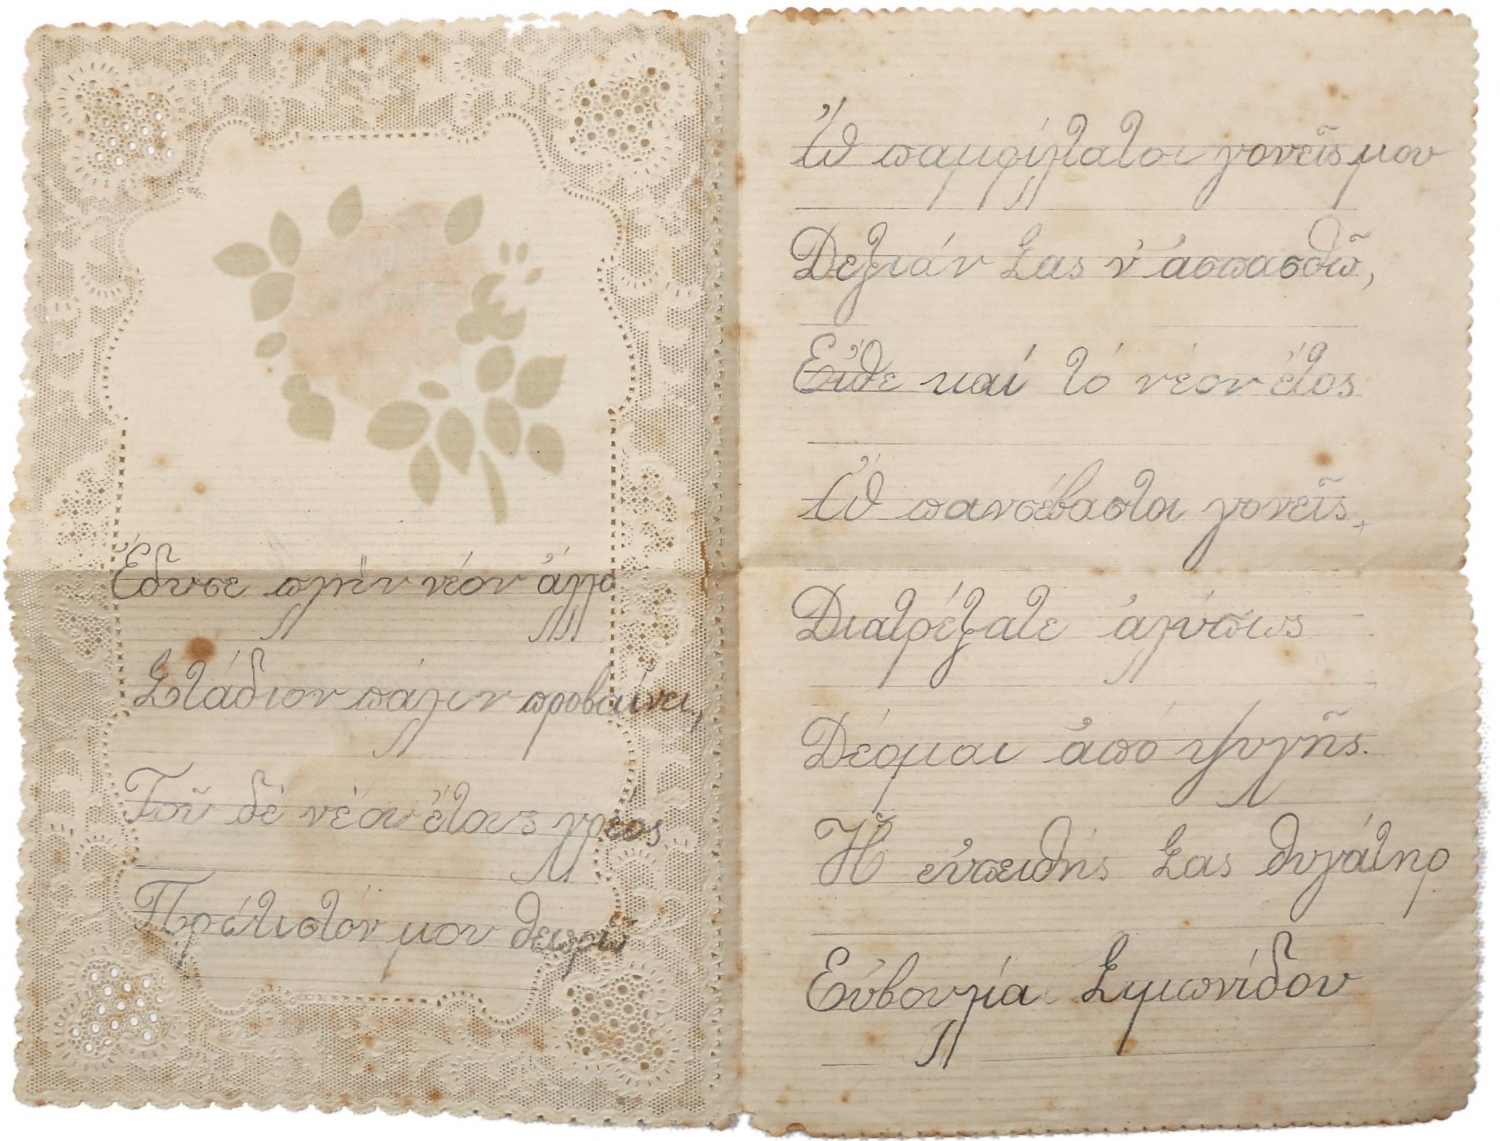 Ἔδυσε πλὴν νέον ἄλλο
Στάδιον πάλιν προβαίνει,
Τοῦ δὲ νέου ἔτους χρέος
Πρώτιστόν μου θεωρῶ
Ὦ παμφίλτατοι γονεῖς μου
Δεξιάν Σας ν' ἀσπασθῶ,
Εἴθε καί τό νέον ἔτος
Ὦ πανσέβαστοι γονεῖς,
Διατρέξατε ἀλύπως
Δέομαι ἀπό ψυχῆς.
Ἡ εὐπειθής Σας θυγάτηρ
Εὐβουλία Σιμωνίδου